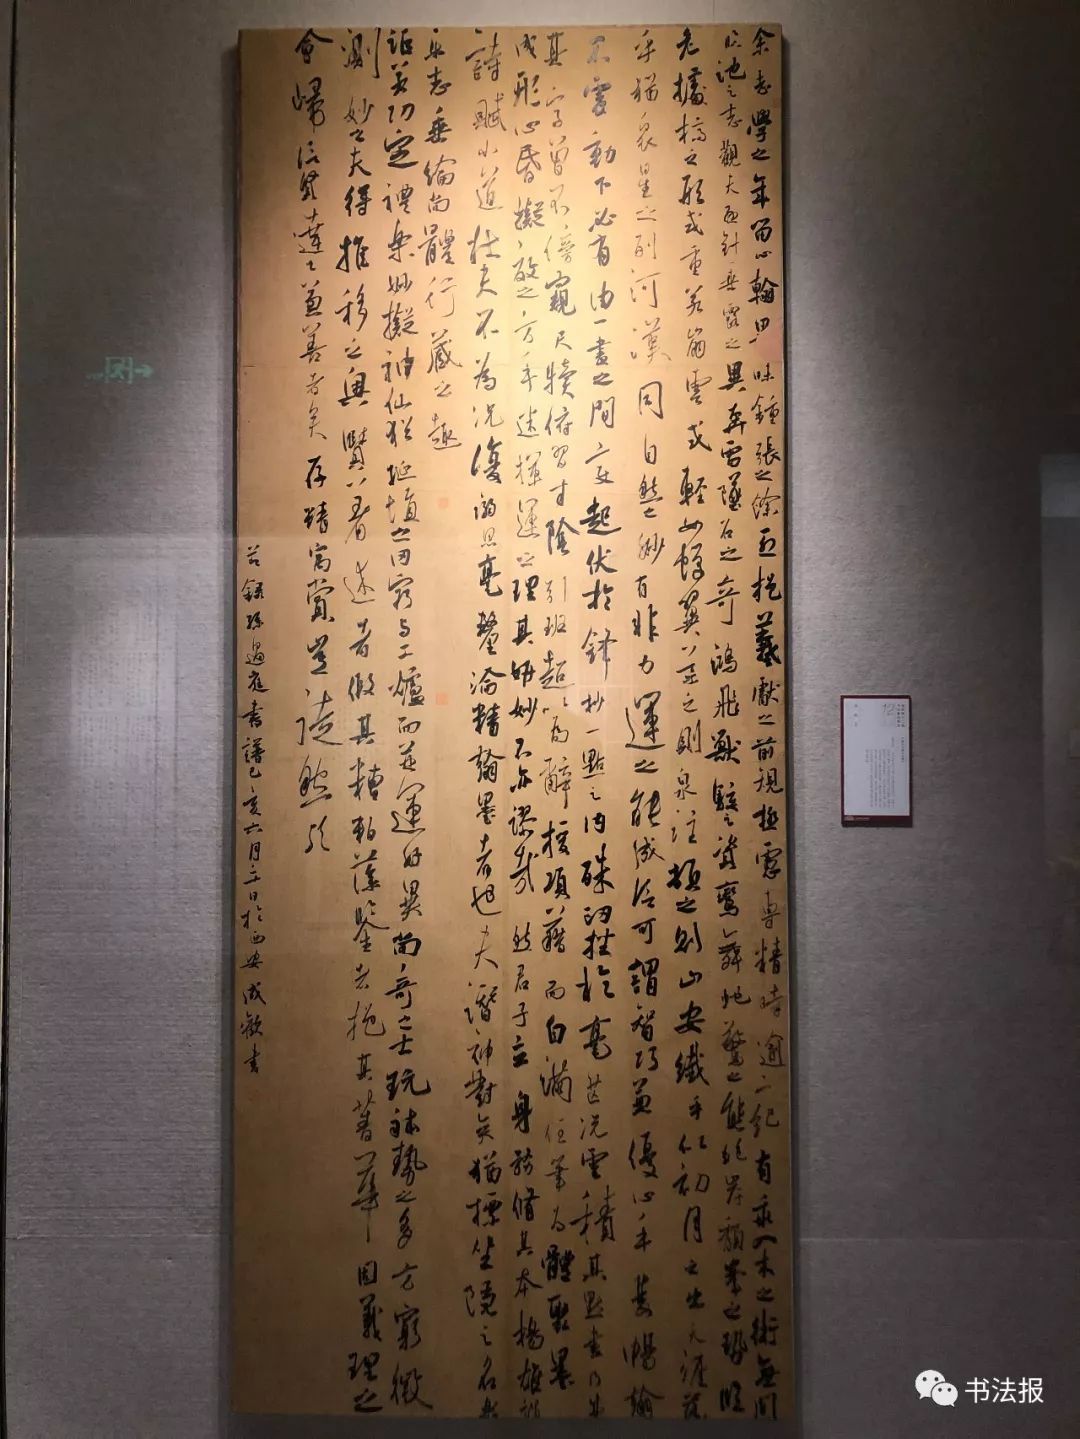 余志學之年留心翰墨味鍾張之餘烈挹羲獻之前規極慮專精時逾二紀有乖入木之術無間
臨池之志觀夫懸針垂露之異奔雷墜石之奇鴻飛獸駭之資鸞舞蛇驚之態絕岸頹峯之勢臨
危據槁之形或重若崩雲或輕如蟬翼導之則泉注頓之則山安纖乎似初月之出天涯落
乎猶衆星之列河漢同自然之妙有非力運之能成信可謂智巧兼優心手雙暢翰
不虛動下必有由一畫之間變起伏於鋒杪一點之内殊衄挫於毫芒況云積其點畫乃成
其字曾不傍窺尺牘俯習寸陰引班超以為辭援項藉而自滿任筆為體聚墨
成形心昏擬效之方手迷揮運之理其妍妙不亦謬哉然君子立身務脩其本楊雄謂
詩賦小道壯夫不為況復溺思毫釐淪精翰墨者也夫潛神對奕猶標坐隱之名
樂志垂綸尚體行藏之趣
詎若功定禮樂妙擬神仙猶埏埴之罔窮與工爐而並運好異尚奇之士玩體勢之多方窮微
測妙之夫得推移之奧賾著述者假其糟粕藻鑒者挹其菁華固義理之
會歸信賢達之兼善者矣存精寓賞豈徒然歟
節錄孫過庭書譜己亥六月三日於西安成歡書
书法报